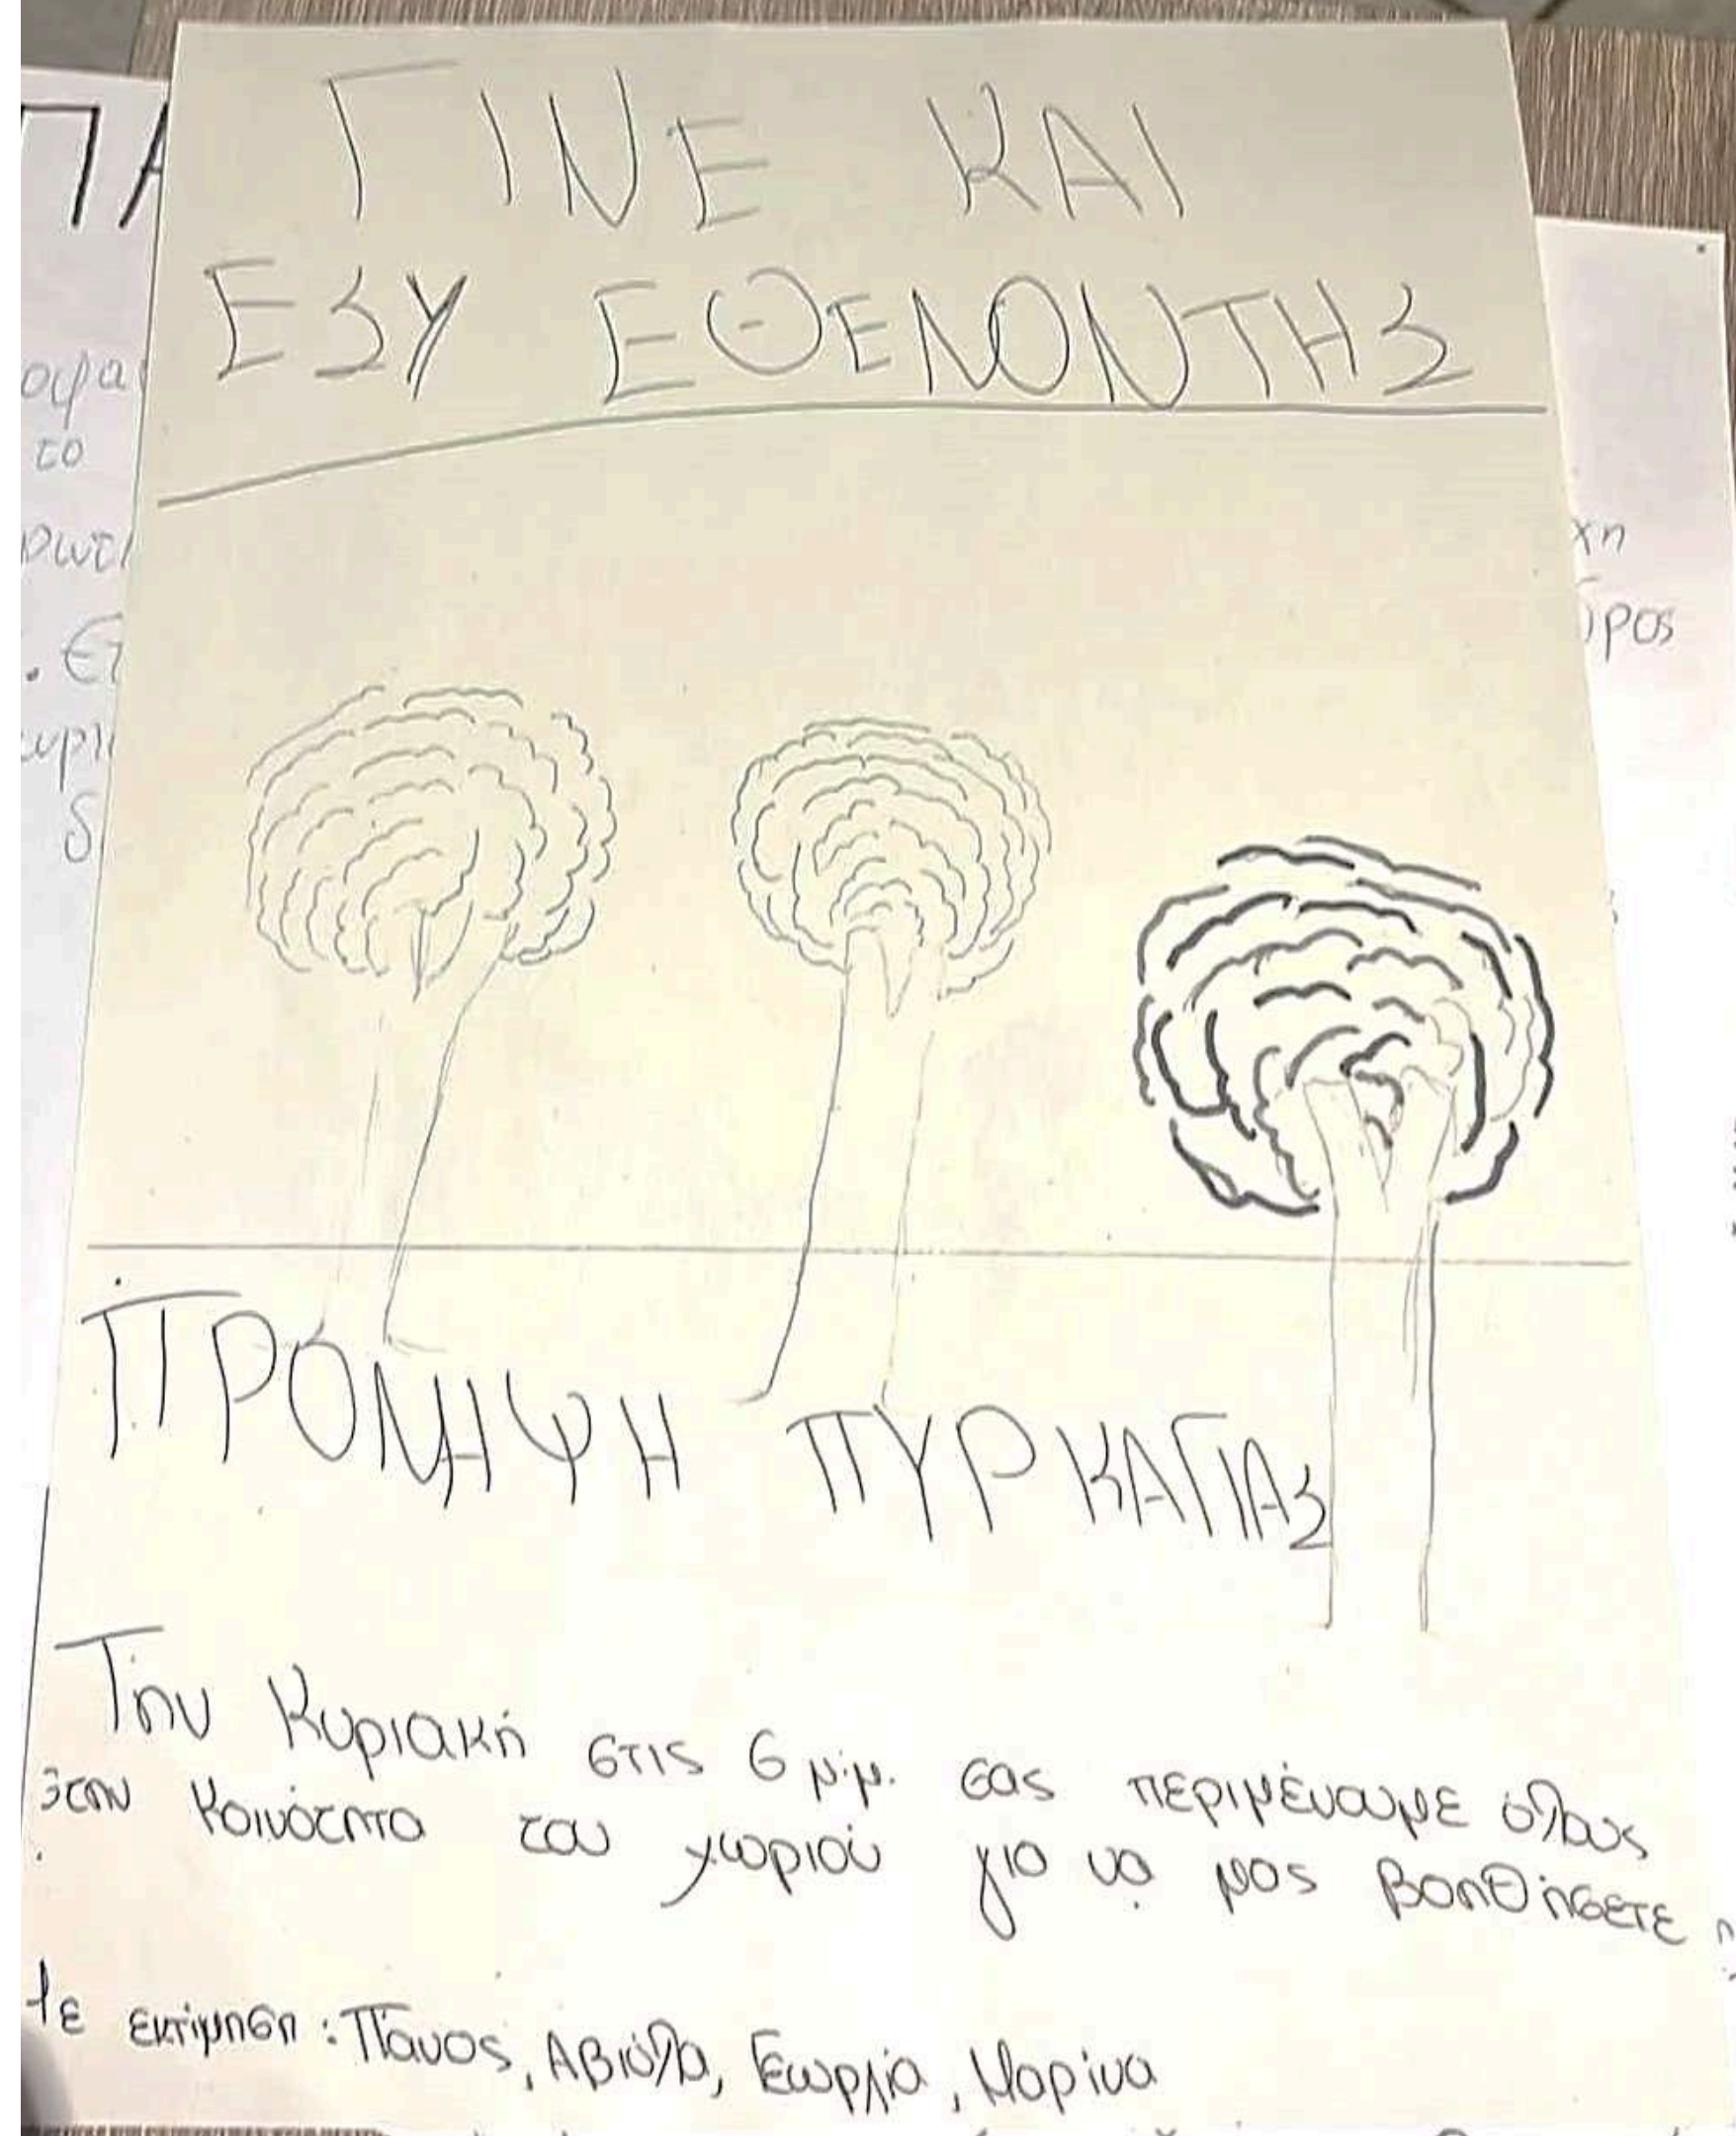 ΓΙΝΕ ΚΑΙ
ΕΣΥ ΕΘΕΛΟΝΤΗΣ
ΠΡΟΛΗΨΗ ΠΥΡΚΑΓΙΑΣ
Την Κυριακή στις 6 μ.μ. σας περιμένουμε όλους
στην κοινότητα του χωριού για να μας βοηθήσετε
Με εκτίμηση: Πάνος, Αβιόλα, Γεωργία, Μαρίνα